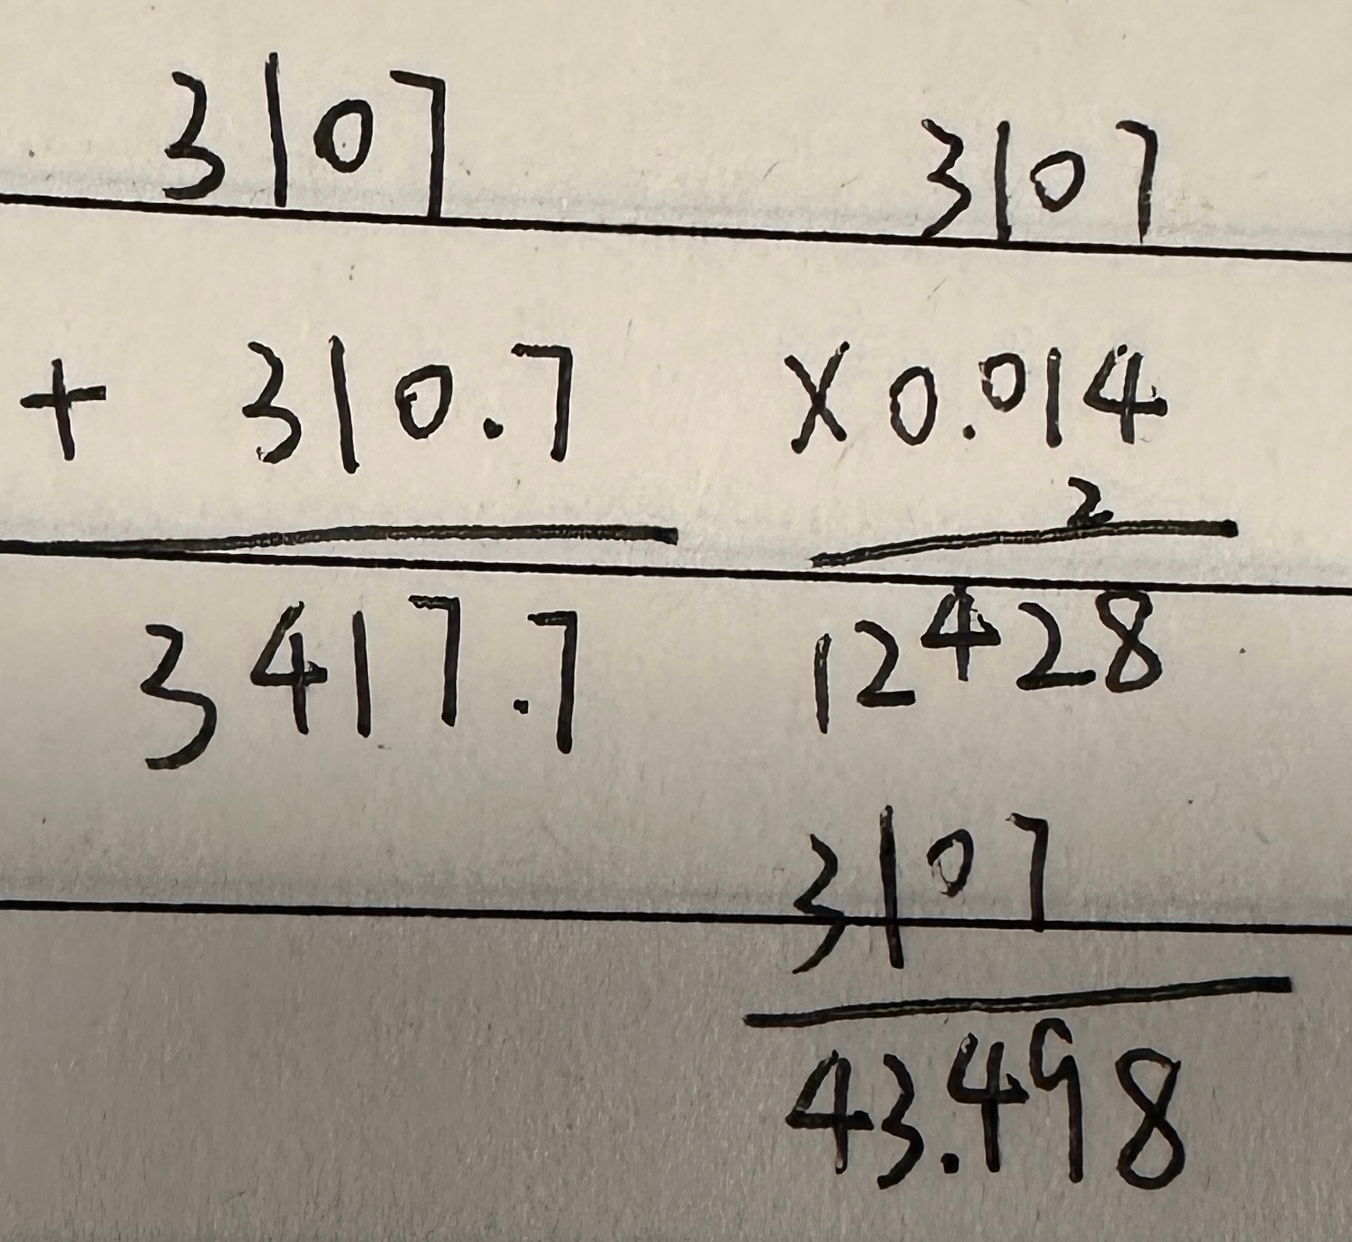 3107
+ 310.7
3417.7
3107
× 0.014
2
12428
3107
43.498